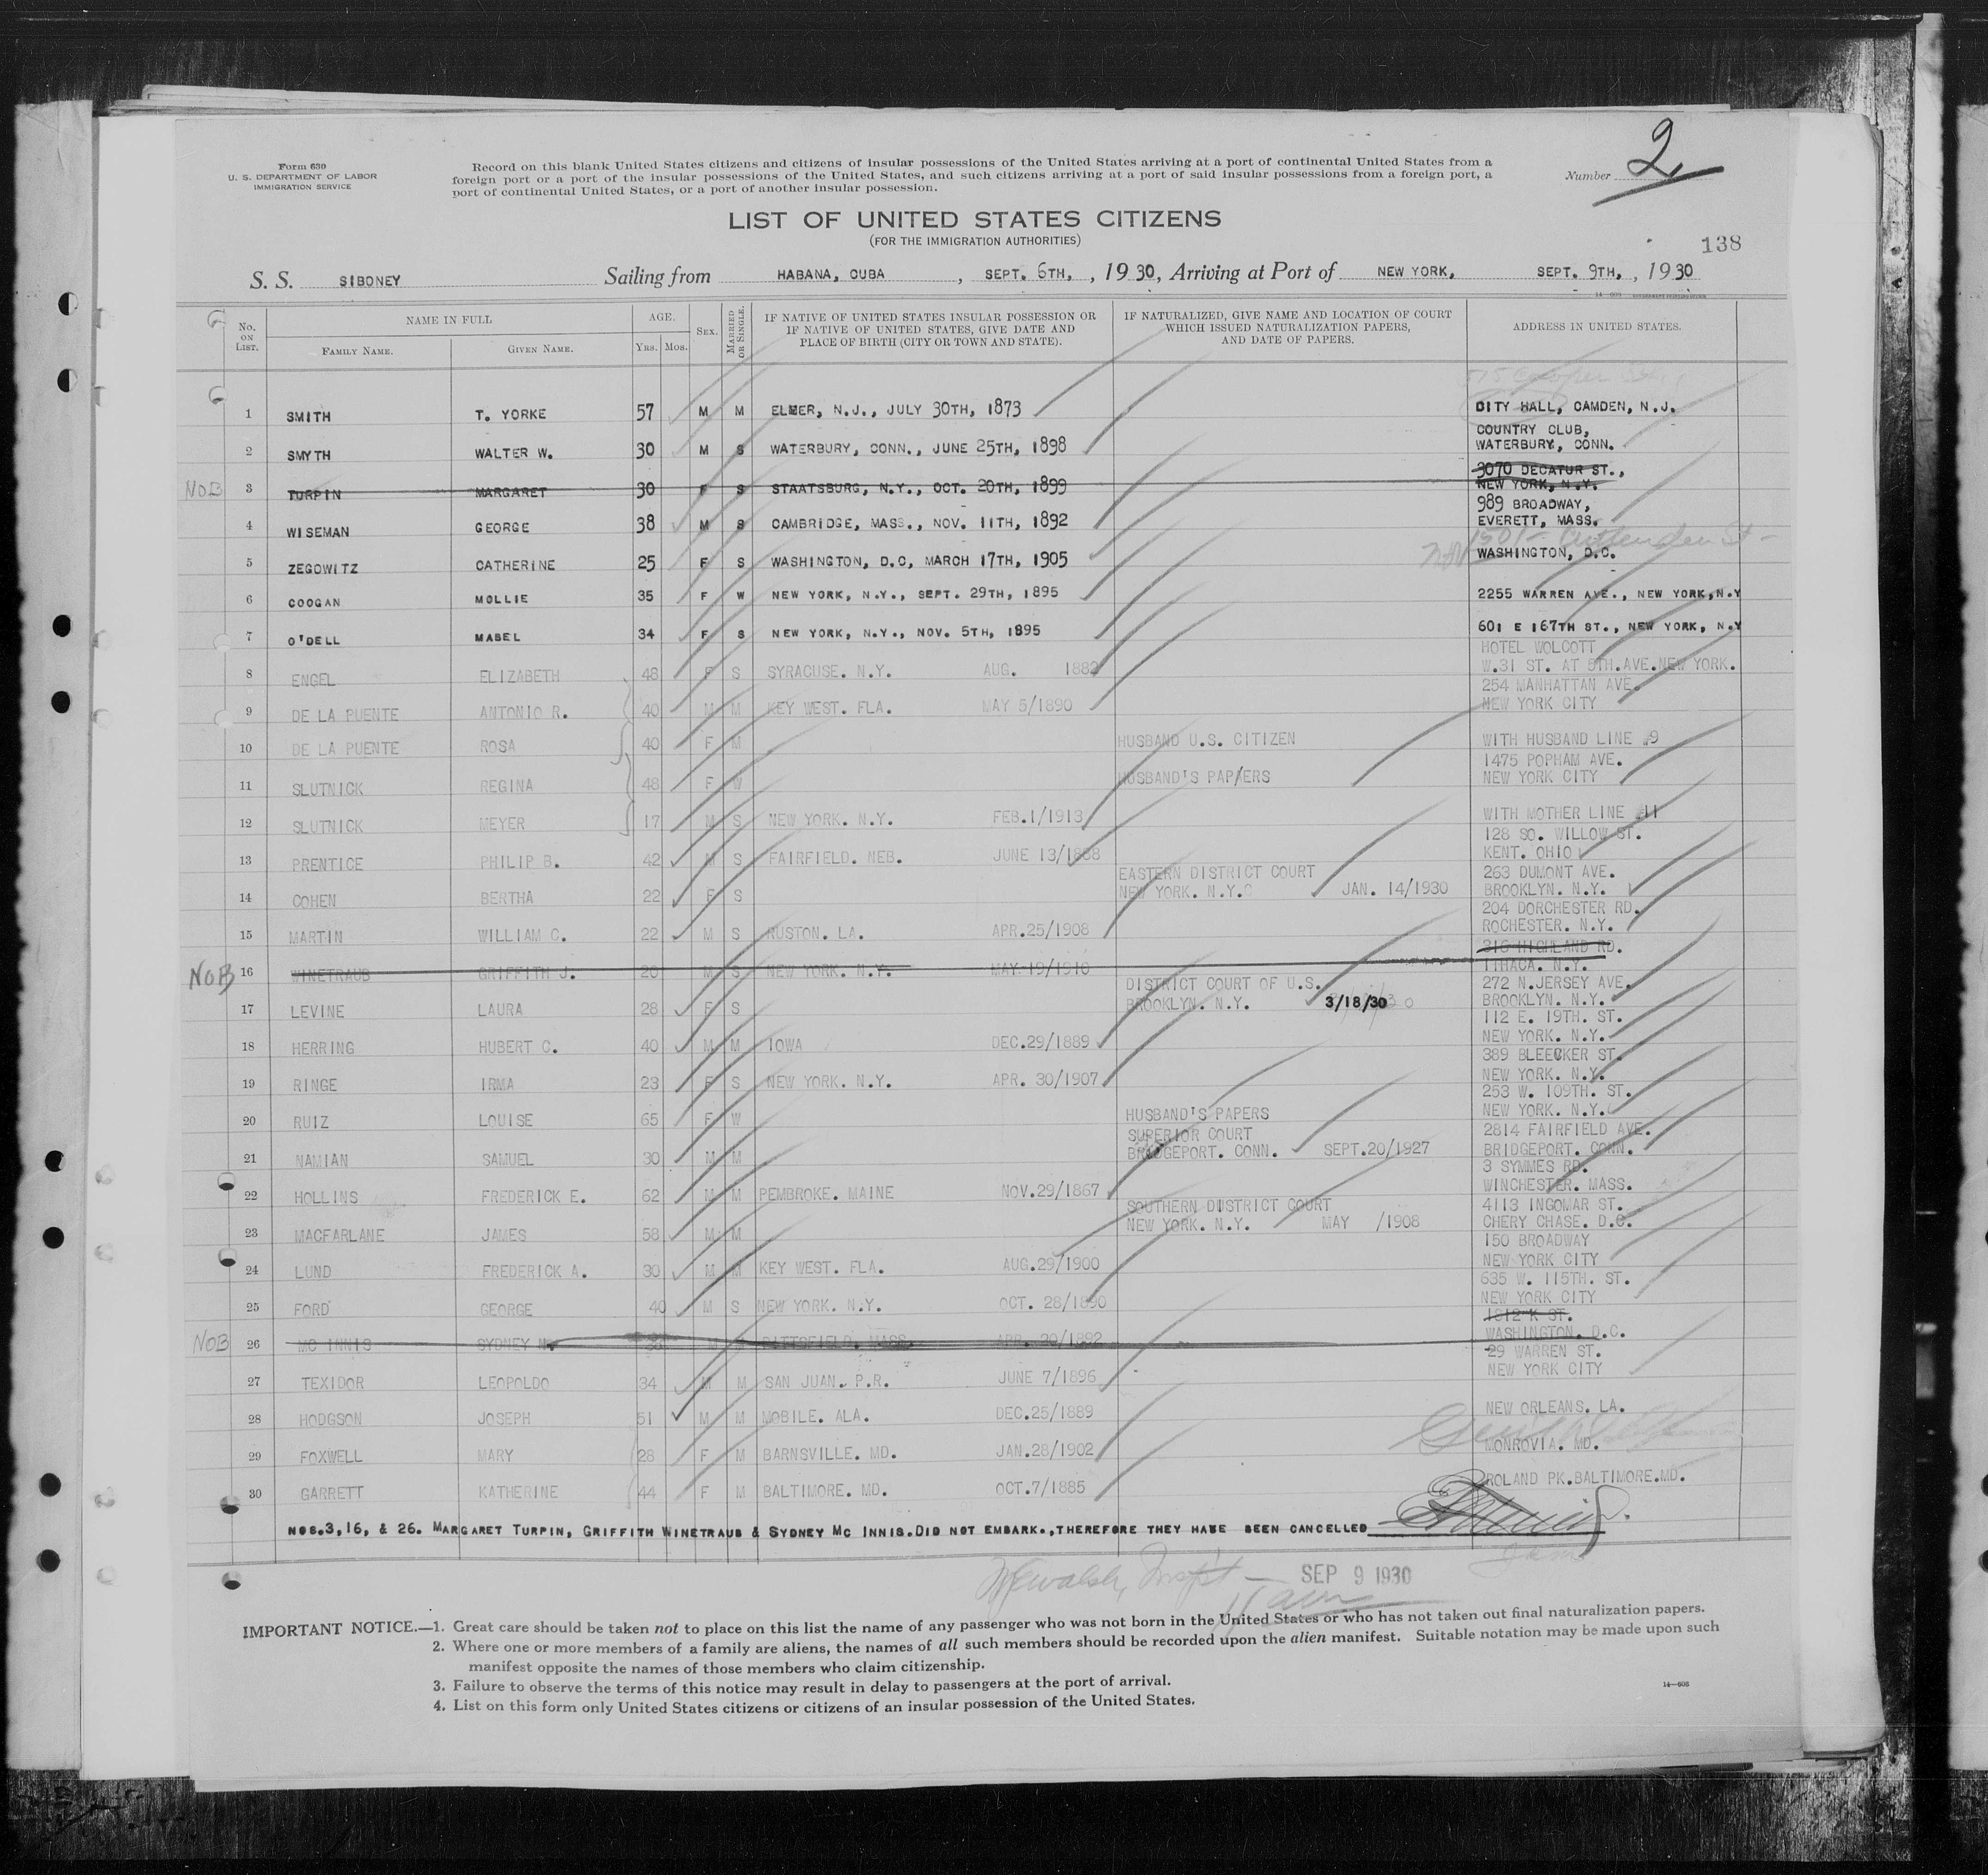 Form 630
U. S. DEPARTMENT OF LABOR
IMMIGRATION SERVICE
Record on this blank United States citizens and citizens of insular possessions of the United States arriving at a port of continental United States from a
foreign port or a port of the insular possessions of the United States, and such citizens arriving at a port of said insular possessions from a foreign port, a
port of continental United States, or a port of another insular possession.
Number 2
LIST OF UNITED STATES CITIZENS
(FOR THE IMMIGRATION AUTHORITIES)
138
S. S. SIBONEY Sailing from HABANA, CUBA, SEPT. 6TH, , 1930, Arriving at Port of NEW YORK, SEPT. 9TH, , 1930
No. ON LIST. NAME IN FULL FAMILY NAME. GIVEN NAME. AGE. Yrs. Mos. SEX. MARRIED OR SINGLE. IF NATIVE OF UNITED STATES INSULAR POSSESSION OR IF NATIVE OF UNITED STATES, GIVE DATE AND PLACE OF BIRTH (CITY OR TOWN AND STATE). IF NATURALIZED, GIVE NAME AND LOCATION OF COURT WHICH ISSUED NATURALIZATION PAPERS, AND DATE OF PAPERS. ADDRESS IN UNITED STATES.
1 SMITH T. YORKE 57 M M ELMER, N.J., JULY 30TH, 1873 CITY HALL, CAMDEN, N.J.
2 SMYTH WALTER W. 30 M S WATERBURY, CONN., JUNE 25TH, 1898 COUNTRY CLUB, WATERBURY, CONN.
NOB 3 TURPIN MARGARET 30 F S STAATSBURG, N.Y., OCT. 20TH, 1899 3070 DECATUR ST., NEW YORK, N.Y.
4 WISEMAN GEORGE 38 M S CAMBRIDGE, MASS., NOV. 11TH, 1892 989 BROADWAY, EVERETT, MASS.
5 ZEGOWITZ CATHERINE 25 F S WASHINGTON, D.C, MARCH 17TH, 1905 WASHINGTON, D.C.
6 COOGAN MOLLIE 35 F W NEW YORK, N.Y., SEPT. 29TH, 1895 2255 WARREN AVE., NEW YORK, N.Y
7 O'DELL MABEL 34 F S NEW YORK, N.Y., NOV. 5TH, 1895 601 E 167TH ST., NEW YORK, N.Y
8 ENGEL ELIZABETH 48 F S SYRACUSE. N.Y. AUG. 1882 HOTEL WOLCOTT W.31 ST. AT 5TH.AVE.NEW YORK.
9 DE LA PUENTE ANTONIO R. 40 M M KEY WEST. FLA. MAY 5/1890 254 MANHATTAN AVE. NEW YORK CITY
10 DE LA PUENTE ROSA 40 F M HUSBAND U.S. CITIZEN WITH HUSBAND LINE #9
11 SLUTNICK REGINA 48 F W HUSBAND'S PAP/ERS 1475 POPHAM AVE. NEW YORK CITY
12 SLUTNICK MEYER 17 M S NEW YORK. N.Y. FEB.1/1913 WITH MOTHER LINE #11
13 PRENTICE PHILIP B. 42 M S FAIRFIELD. NEB. JUNE 13/1888 128 SO. WILLOW ST. KENT. OHIO
14 COHEN BERTHA 22 F S EASTERN DISTRICT COURT NEW YORK. N.Y. JAN. 14/1930 263 DUMONT AVE. BROOKLYN. N.Y.
15 MARTIN WILLIAM C. 22 M S RUSTON. LA. APR.25/1908 204 DORCHESTER RD. ROCHESTER. N.Y.
NOB 16 WINETRAUB GRIFFITH J. 20 M S NEW YORK. N.Y. MAY 19/1910 316 HIGHLAND RD. ITHACA. N.Y.
17 LEVINE LAURA 28 F S DISTRICT COURT OF U.S. BROOKLYN. N.Y. 3/18/30 272 N.JERSEY AVE. BROOKLYN. N.Y.
18 HERRING HUBERT C. 40 M M IOWA DEC.29/1889 112 E. 19TH. ST. NEW YORK. N.Y.
19 RINGE IRMA 23 F S NEW YORK. N.Y. APR. 30/1907 389 BLEECKER ST. NEW YORK. N.Y.
20 RUIZ LOUISE 65 F W HUSBAND'S PAPERS 253 W. 109TH. ST. NEW YORK. N.Y.
21 NAMIAN SAMUEL 30 M M SUPERIOR COURT BRIDGEPORT. CONN. SEPT.20/1927 2814 FAIRFIELD AVE. BRIDGEPORT. CONN.
22 HOLLINS FREDERICK E. 62 M M PEMBROKE. MAINE NOV.29/1867 3 SYMMES RD. WINCHESTER. MASS.
23 MACFARLANE JAMES 58 M M SOUTHERN DISTRICT COURT NEW YORK. N.Y. MAY /1908 4113 INGOMAR ST. CHERY CHASE. D.C.
24 LUND FREDERICK A. 30 M M KEY WEST. FLA. AUG.29/1900 150 BROADWAY NEW YORK CITY
25 FORD GEORGE 40 M S NEW YORK. N.Y. OCT. 28/1890 635 W. 115TH. ST. NEW YORK CITY
NOB 26 MC INNIS SYDNEY M. PITTSFIELD. MASS. APR. 20/1892 1812 K ST. WASHINGTON. D.C.
27 TEXIDOR LEOPOLDO 34 M M SAN JUAN. P.R. JUNE 7/1896 29 WARREN ST. NEW YORK CITY
28 HODGSON JOSEPH 51 M M MOBILE. ALA. DEC.25/1889 NEW ORLEANS. LA.
29 FOXWELL MARY 28 F M BARNSVILLE. MD. JAN.28/1902 MONROVIA. MD.
30 GARRETT KATHERINE 44 F M BALTIMORE. MD. OCT.7/1885 ROLAND PK.BALTIMORE.MD.
NOS.3,16, & 26. MARGARET TURPIN, GRIFFITH WINETRAUB & SYDNEY MC INNIS.DID NOT EMBARK.,THEREFORE THEY HAVE BEEN CANCELLED
SEP 9 1930
IMPORTANT NOTICE.—1. Great care should be taken not to place on this list the name of any passenger who was not born in the United States or who has not taken out final naturalization papers.
2. Where one or more members of a family are aliens, the names of all such members should be recorded upon the alien manifest. Suitable notation may be made upon such
manifest opposite the names of those members who claim citizenship.
3. Failure to observe the terms of this notice may result in delay to passengers at the port of arrival.
4. List on this form only United States citizens or citizens of an insular possession of the United States.
14—608